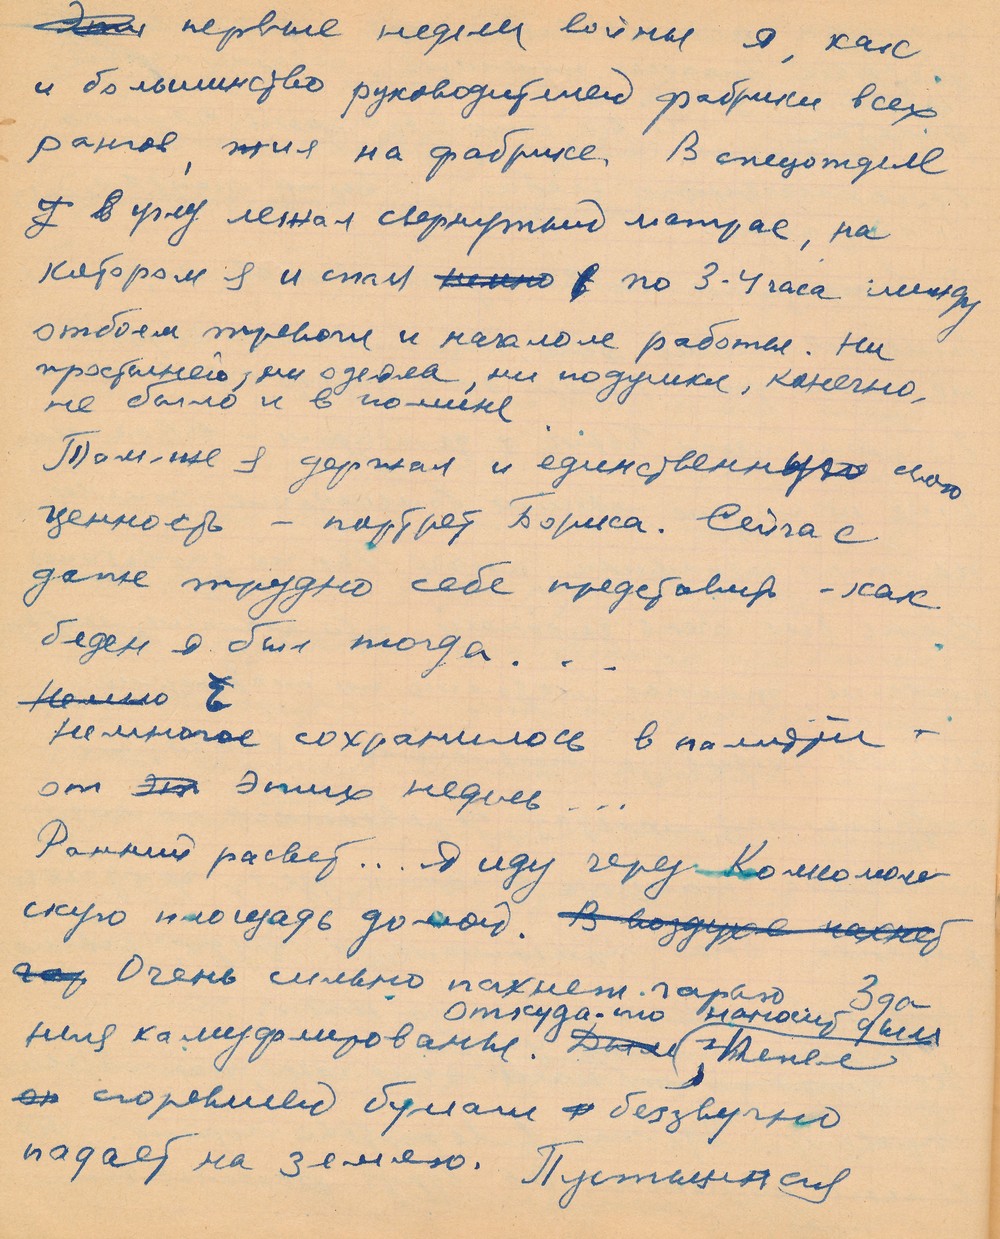 первые недели войны я, как
и большинство руководителей фабрики всех
рангов, жил на фабрике. В спецотделе
в углу лежал свернутый матрас, на
котором я и спал по 3-4 часа между
отбоем тревоги и началом работы. Ни
простыней, ни одеяла, ни подушки, конечно,
не было и в помине
Там-же я держал и единственную свою
ценность – портрет Бориса. Сейчас
даже трудно себе представить – как
беден я был тогда . . .
Немно
Немногое сохранилось в памяти –
от эт этих недель ...
Ранний расвет... Я иду через Комсомоль
скую площадь домой. В воздухе пахнет
гар Очень сильно пахнет гарью Зда
откуда-то наносит дым
ния камуфлированы. Дым Пепел
сгоревшей бумаги беззвучно
падает на землю. Пустынная